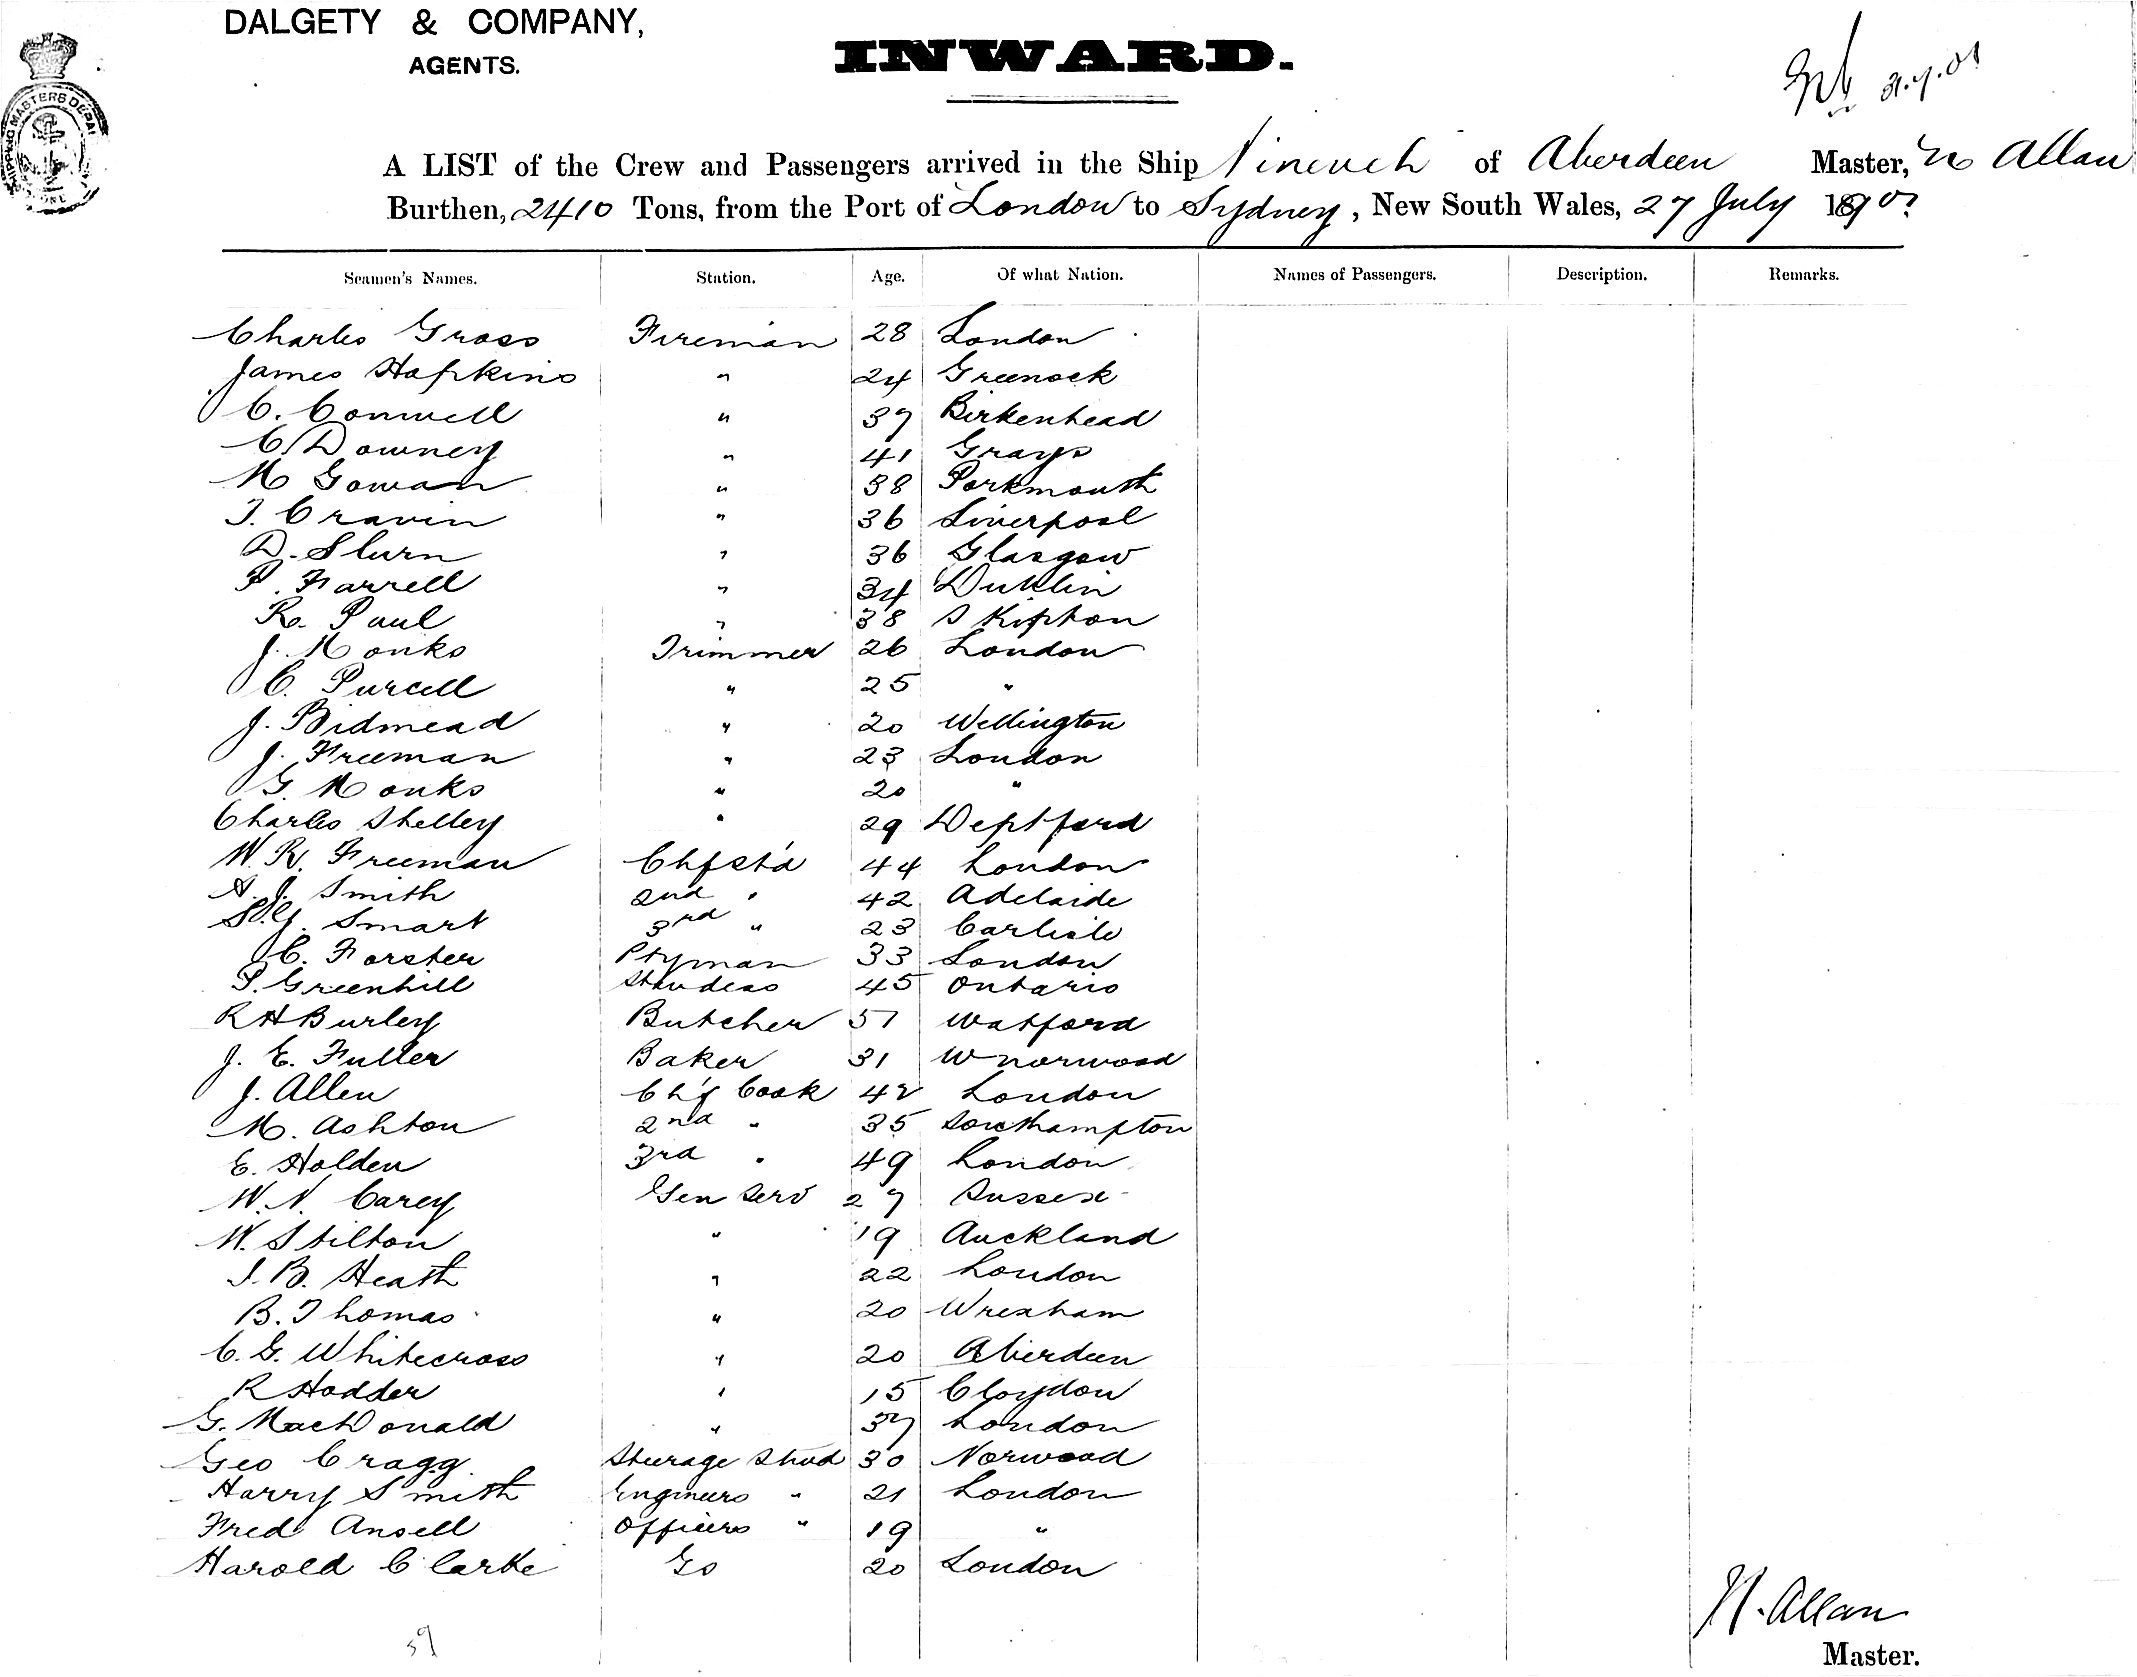 DALGETY & COMPANY,
AGENTS.
INWARD.
SHIPPING MASTERS DEPAR
A LIST of the Crew and Passengers arrived in the Ship Nineveh of Aberdeen Master, N Allan
Burthen, 2410 Tons, from the Port of London to Sydney, New South Wales, 27 July 1890
Seamen's Names. Station. Age. Of what Nation. Names of Passengers. Description. Remarks.
Charles Gross Fireman 28 London
James Hopkins " 24 Greenock
C. Conwell " 37 Birkenhead
C Downey " 41 Grays
M Gowan " 38 Porkmouth
T. Cravin " 36 Liverpool
D. Slurn " 36 Glasgow
P. Farrell " 34 Dublin
R. Paul " 38 Skipton
J. Monks Trimmer 26 London
C. Purcell " 25 "
J. Bidmead " 20 Wellington
J. Freeman " 23 London
G. Monks " 20 "
Charles Shelley " 29 Deptford
W. R. Freeman Chf std 44 London
A. J. Smith 2nd " 42 Adelaide
Smart 3rd " 23 Carlisle
C. Forster Ptyman 33 London
P. Greenhill Stewdess 45 Ontario
R H Burley Butcher 51 Watford
J. E. Fuller Baker 31 W norwood
J. Allen Ch'f Cook 42 London
M. Ashton 2nd " 35 Southampton
E. Holden 3rd " 49 London
W. N. Carey Gen Serv 27 Sussex
W. Stilton " 19 Auckland
J. B. Heath " 22 London
B. Thomas " 20 Wrexham
C. G. Whitecross " 20 Aberdeen
R Hodder " 15 Cloydon
G. MacDonald " 37 London
Geo Cragg Steerage Stwd 30 Norwood
Harry Smith Engineers " 21 London
Fred Ansell Officers " 19 "
Harold Clarke Go 20 London
39
N. Allan
Master.